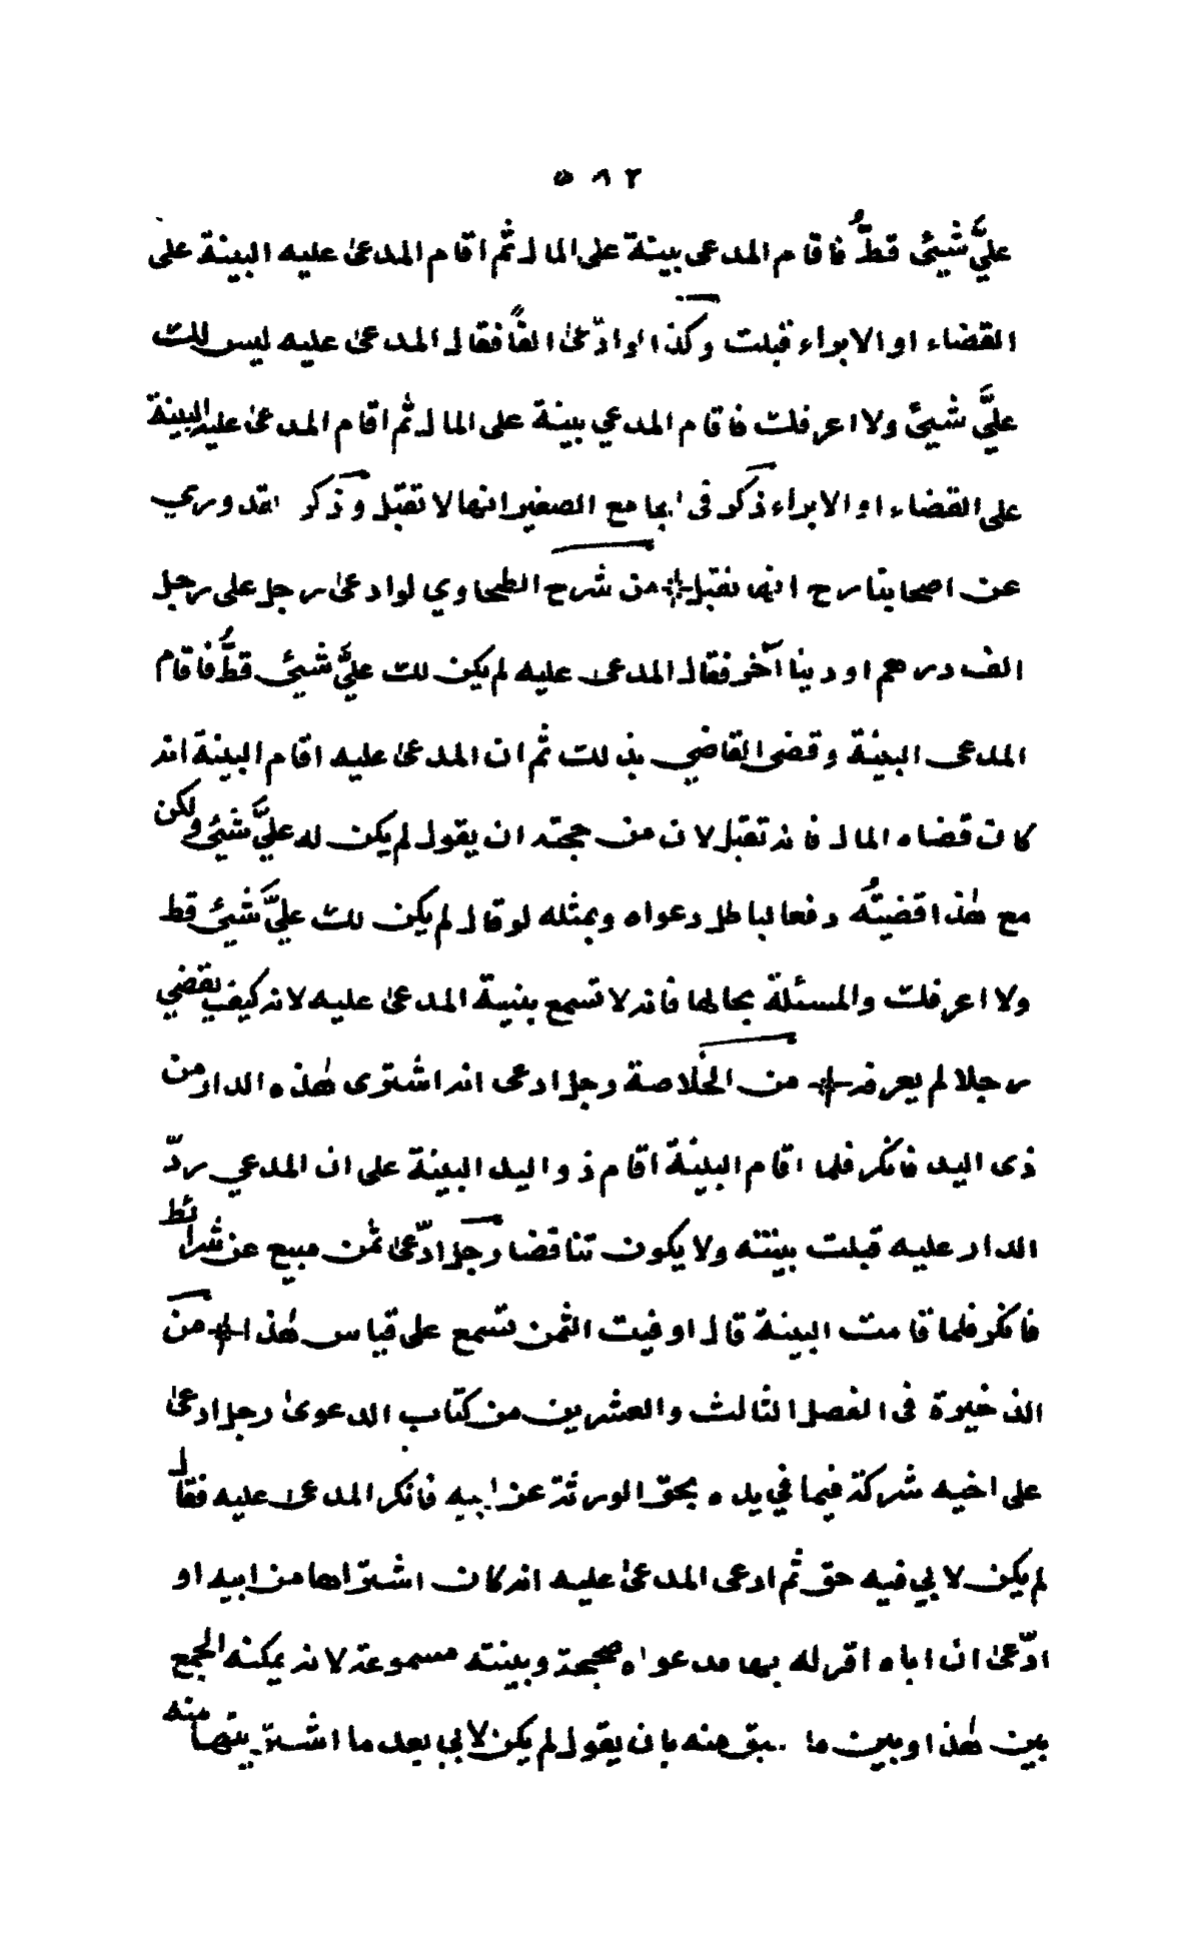 ٥٨٢
عليَّ شيئ قطُّ فاقام المدعى بينة على المال ثم اقام المدعى عليه البينة على
القضاء او الابراء قبلت وكذا لو ادّعى الفًا فقال المدعى عليه ليس لك
عليَّ شيئ ولا اعرفك فاقام المدعي بينة على المال ثم اقام المدعى عليه البينة
على القضاء او الابراء ذكر فى الجامع الصغير انها لا تقبل وذكر القدوري
عن اصحابنا رح انها تقبل من شرح الطحاوي لو ادعى رجل على رجل
الف درهم او دينا آخر فقال المدعى عليه لم يكن لك عليَّ شيئ قطُّ فاقام
المدعى البينة وقضى القاضي بذلك ثم ان المدعى عليه اقام البينة انه
كان قضاه المال فانه تقبل لان من حجته ان يقول لم يكن له عليَّ شيئ ولكن
مع هذا قضيتُه دفعا لباطل دعواه وبمثله لو قال لم يكن لك عليَّ شيئ قط
ولا اعرفك والمسئلة بحالها فانه لا تسمع بينة المدعى عليه لانه كيف يقضي
رجلا لم يعرفه من الخلاصة رجل ادعى انه اشترى هذه الدار من
ذى اليد فانكر فلما اقام البينة اقام ذو اليد البينة على ان المدعي ردّ
الدار عليه قبلت بينته ولا يكون تناقضا رجل ادّعى ثمن مبيع عن شرائط
فانكر فلما قامت البينة قال اوفيت الثمن تسمع على قياس هذا من
الذخيرة فى الفصل الثالث والعشرين من كتاب الدعوى رجل ادعى
على اخيه شركة فيما في يده بحق الورثة عن ابيه فانكر المدعى عليه فقال
لم يكن لابي فيه حق ثم ادعى المدعى عليه انه كان اشتراها من ابيه او
ادّعى ان اباه اقر له بها فدعواه صحيحة وبينته مسموعة لانه يمكنه الجمع
بين هذا وبين ما سبق منه بان يقول لم يكن لابي بعد ما اشتريتها منه